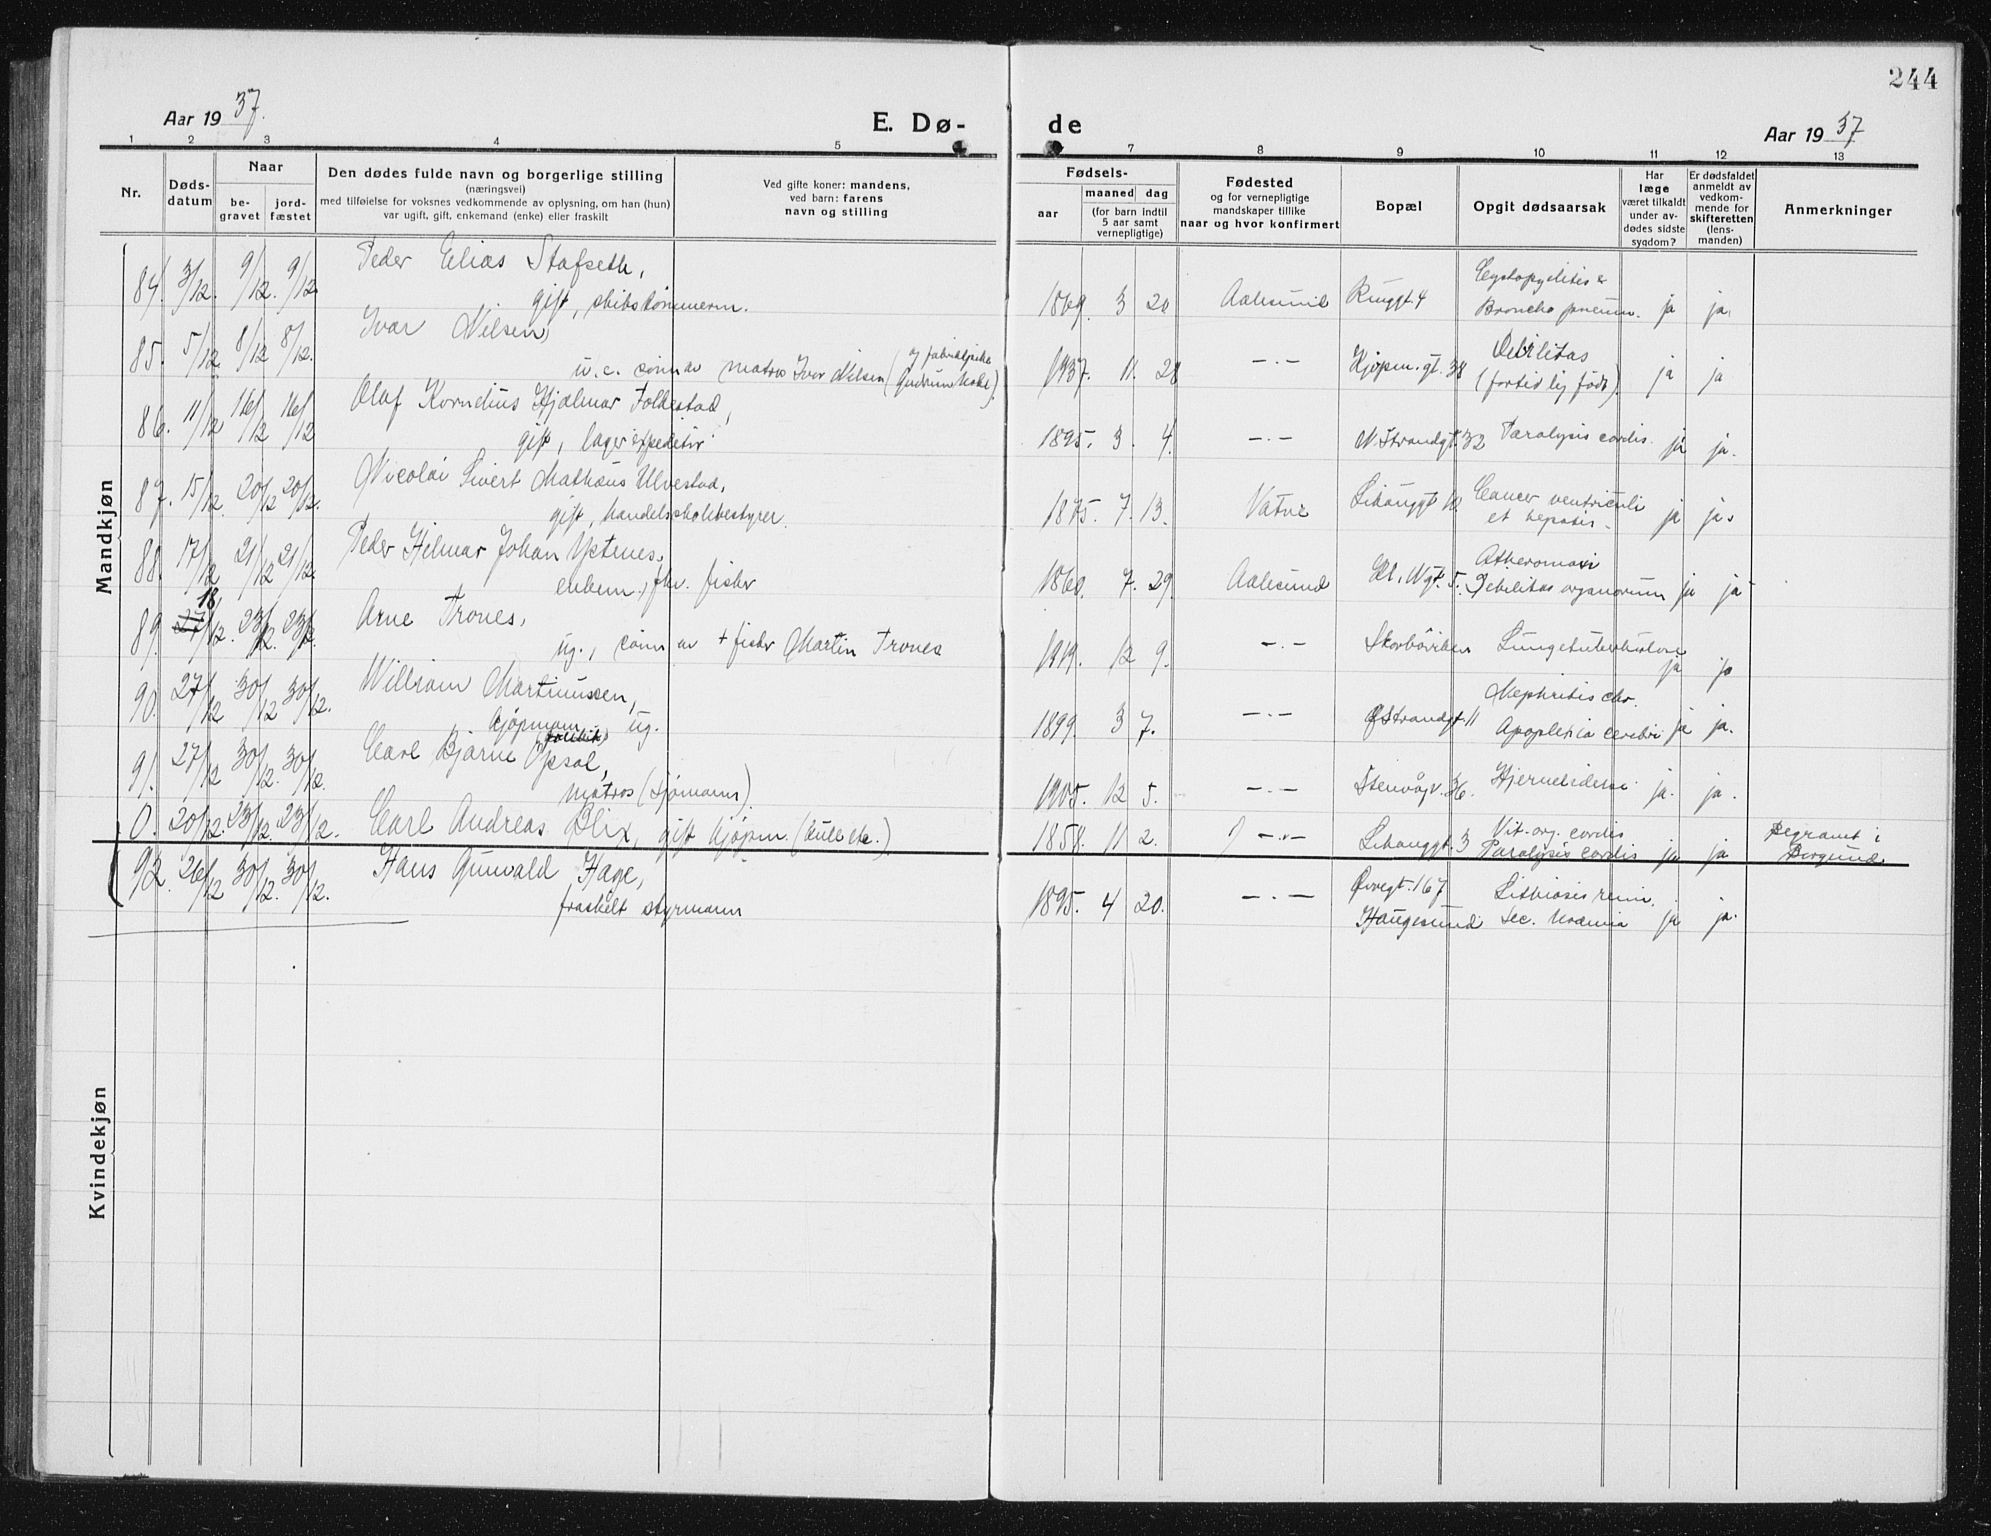 244
Aar 1937.
E. Dø-
de
Aar 1937
1 2 3 4 5
7 8 9 10 11 12 13
Nr.
Døds-
datum
Naar
be-
gravet
jord-
fæstet
Den dødes fulde navn og borgerlige stilling
(næringsvei)
med tilføielse for voksnes vedkommende av oplysning, om han (hun)
var ugift, gift, enkemand (enke) eller fraskilt
Ved gifte koner: mandens,
ved barn: farens
navn og stilling
Fødsels-
aar
maaned dag
(for barn indtil
5 aar samt
vernepligtige)
Fødested
og for vernepligtige
mandskaper tillike
naar og hvor konfirmert
Bopæl
Opgit dødsaarsak
Har
læge
været tilkaldt
under av-
dødes sidste
sygdom?
Er dødsfaldet
anmeldt av
vedkom-
mende for
skifteretten
(lens-
manden)
Anmerkninger
Mandkjøn
84. 3/12. 9/12. 9/12. Peder Elias Stafseth,
gift, skibstømmerm. 1869. 3 20 Aalesund Ringgt. 4 Cystopyelitis &
Broncho pneum. ja ja.
85. 5/12 8/12 8/12. Ivar Nilsen,
u.e. sønn av matros Ivar Nilsen (og
Gudrun 1937. 11. 28 -.- Kjøpm.gt. 38 Debilitas
(fortidlig født). ja ja
86. 11/12 16/12 16/12 Olaf Kornelius Hjalmar Folkestad,
gift, lagerekspeditør. 1895. 3. 4. -.- N. Strandgt. 32 Paralysis cordis. ja ja.
87. 15/12. 20/12 20/12. Nicolai Sivert Mathæus Ulvestad,
gift, handelsskolebestyrer. 1875. 7. 13. Vatne Lihauggt. Cancer ventriculi
et hepatis. ja ja.
88. 17/12 21/12 21/12. Peder Hilmar Johan Ystenes,
enkem., fhv. fisker 1860. 7. 29. Aalesund Kl. Ngt. 5. Atheromasi
Debilitas organorum ja ja
89. 18/12. 23/12. 23/12. Arne Trones,
ug., sønn av + fisker Martin Trones 1919. 12 9. -.- Skarbøviken Lungetuberkulose ja ja
90. 27/12 30/12 30/12. William Martinussen,
kjøpmann, ug. 1899. 3 7. -.- Ø. Strandgt. 11 Nephritis chr.
Apoplexia cerebri ja ja.
91. 27/12 30/12. 30/12. Carl Bjarne Opsal,
matros (sjømann). 1905. 12 5. -.- Stenvågv. 36. Hjernelidelse. ja. ja.
0. 20/12. 23/12. 23/12. Carl Andreas Blix, gift kjøpm. (kull etc.) 1858. 11 2. -.- Lihauggt. 3 Vit. org. cordis
Paralysis cordis ja ja Begravet i
Borgund.
92. 26/12 30/12. 30/12. Hans Gunvald Hage,
fraskilt styrmann 1895. 4 20. -.- Øvregt. 167
Haugesund Lithiasis renis.
Sec. Uræmia ja ja.
Kvindekjøn